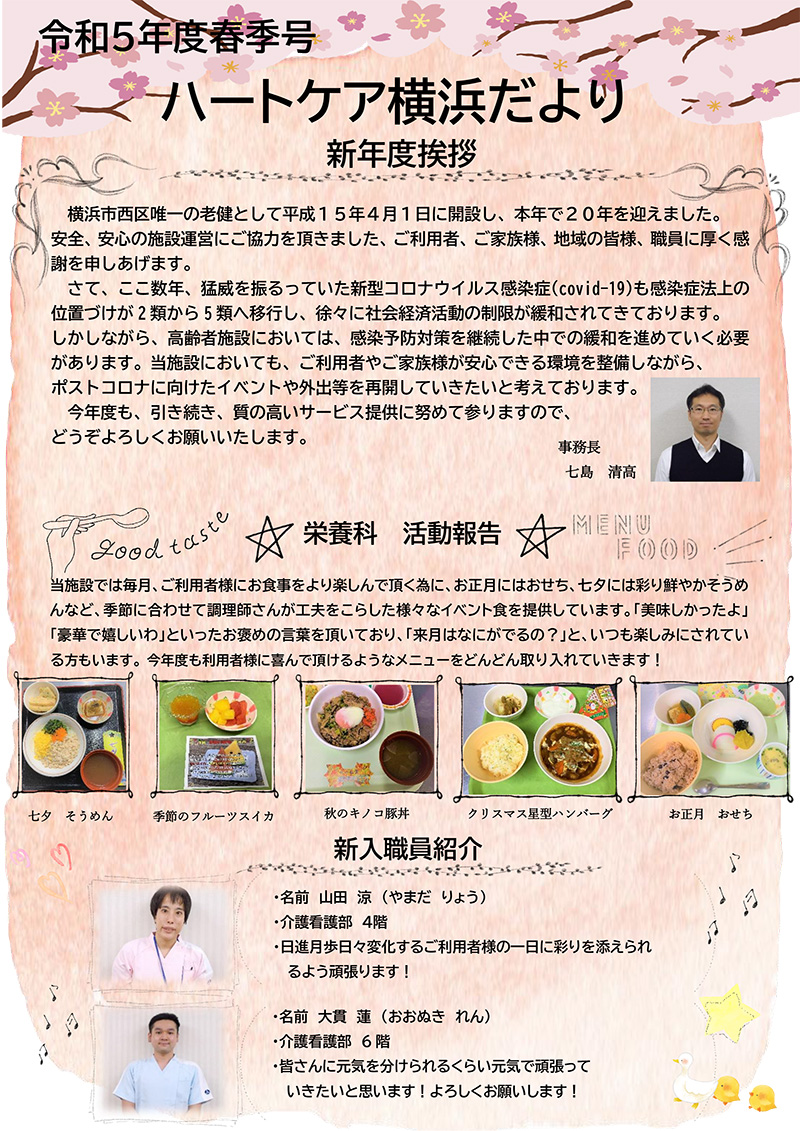 令和5年度春季号
ハートケア横浜だより
新年度挨拶
横浜市西区唯一の老健として平成１５年４月１日に開設し、本年で２０年を迎えました。
安全、安心の施設運営にご協力を頂きました、ご利用者、ご家族様、地域の皆様、職員に厚く感
謝を申しあげます。
さて、ここ数年、猛威を振るっていた新型コロナウイルス感染症(covid-19)も感染症法上の
位置づけが２類から５類へ移行し、徐々に社会経済活動の制限が緩和されてきております。
しかしながら、高齢者施設においては、感染予防対策を継続した中での緩和を進めていく必要
があります。当施設においても、ご利用者やご家族様が安心できる環境を整備しながら、
ポストコロナに向けたイベントや外出等を再開していきたいと考えております。
今年度も、引き続き、質の高いサービス提供に努めて参りますので、
どうぞよろしくお願いいたします。
事務長
七島　清高
good taste
栄養科　活動報告
MENU
FOOD
当施設では毎月、ご利用者様にお食事をより楽しんで頂く為に、お正月にはおせち、七夕には彩り鮮やかそうめ
んなど、季節に合わせて調理師さんが工夫をこらした様々なイベント食を提供しています。「美味しかったよ」
「豪華で嬉しいわ」といったお褒めの言葉を頂いており、「来月はなにがでるの？」と、いつも楽しみにされてい
る方もいます。今年度も利用者様に喜んで頂けるようなメニューをどんどん取り入れていきます！
七夕　そうめん
季節のフルーツスイカ
秋のキノコ豚丼
クリスマス星型ハンバーグ
お正月　おせち
新入職員紹介
・名前　山田　涼　（やまだ　りょう）
・介護看護部　4階
・日進月歩日々変化するご利用者様の一日に彩りを添えられ
るよう頑張ります！
・名前　大貫　蓮　（おおぬき　れん）
・介護看護部　６階
・皆さんに元気を分けられるくらい元気で頑張って
いきたいと思います！よろしくお願いします！